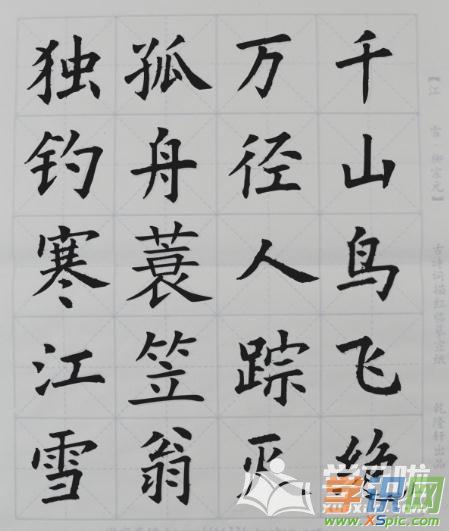 千山鸟飞绝
万径人踪灭
孤舟蓑笠翁
独钓寒江雪
【江雪·柳宗元】
古诗词描红临摹宣纸
乾隆轩出品
学识网
XSpic.com